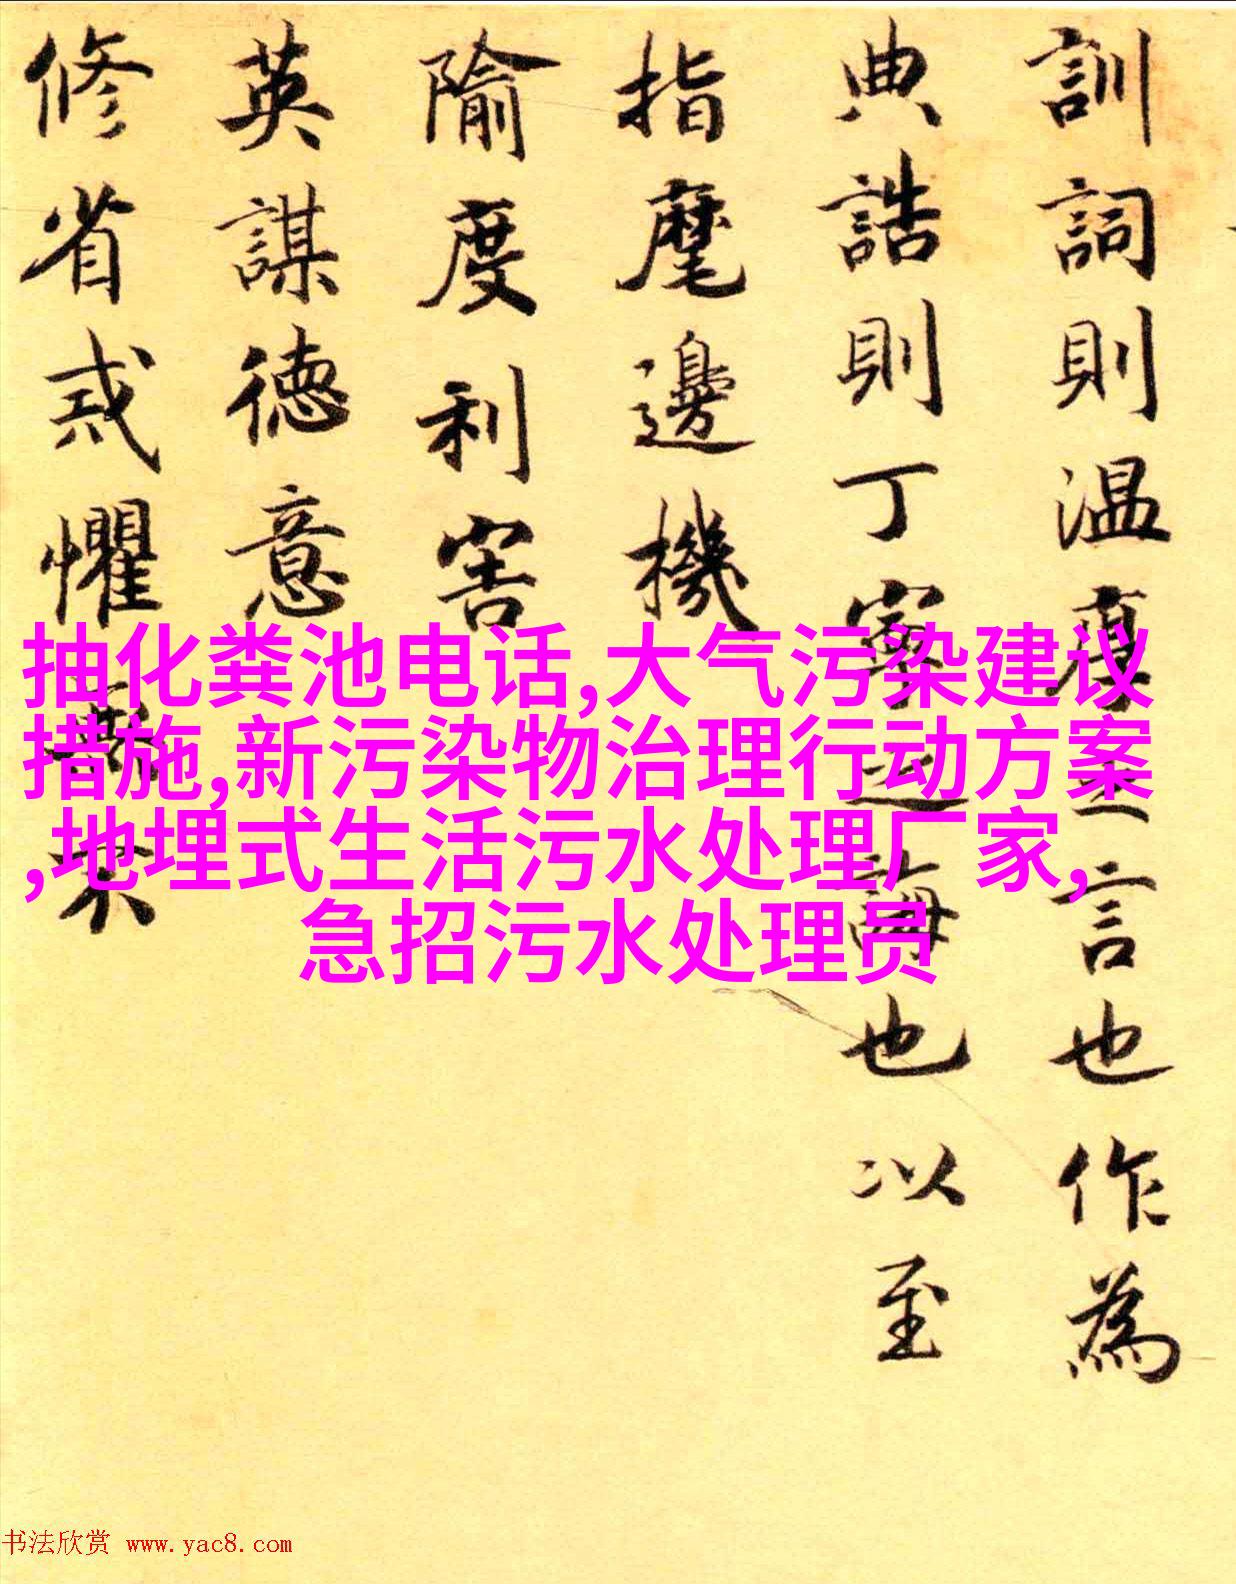 訓詞則温厚之言也作為
典誥則丁寧之誨也以至
指麾邊機
隃度利害
英謀德意
修省戒懼
抽化粪池电话,大气污染建议
措施,新污染物治理行动方案
,地埋式生活污水处理厂家,
急招污水处理员
书法欣赏 www.yac8.com